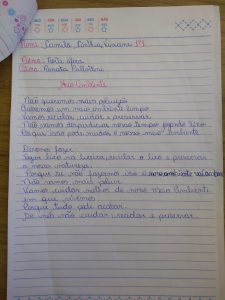 Nome: Camila
Meio Ambiente
Não queremos mais poluição
Queremos um meio ambiente limpo
Vamos reciclar, cuidar e preservar
Não vamos desperdiçar nosso tempo jogando lixo
Porque isso pode mudar o nosso meio ambiente
Devemos fazer
Jogar lixo na lixeira, cuidar o lixo e preservar
a nossa natureza.
Porque se não fazermos isso o meio ambiente vai acabar
Não vamos mais poluir
Vamos cuidar melhor do nosso meio ambiente
em que vivemos
Porque tudo pode acabar.
Se nós não cuidar, reciclar e preservar